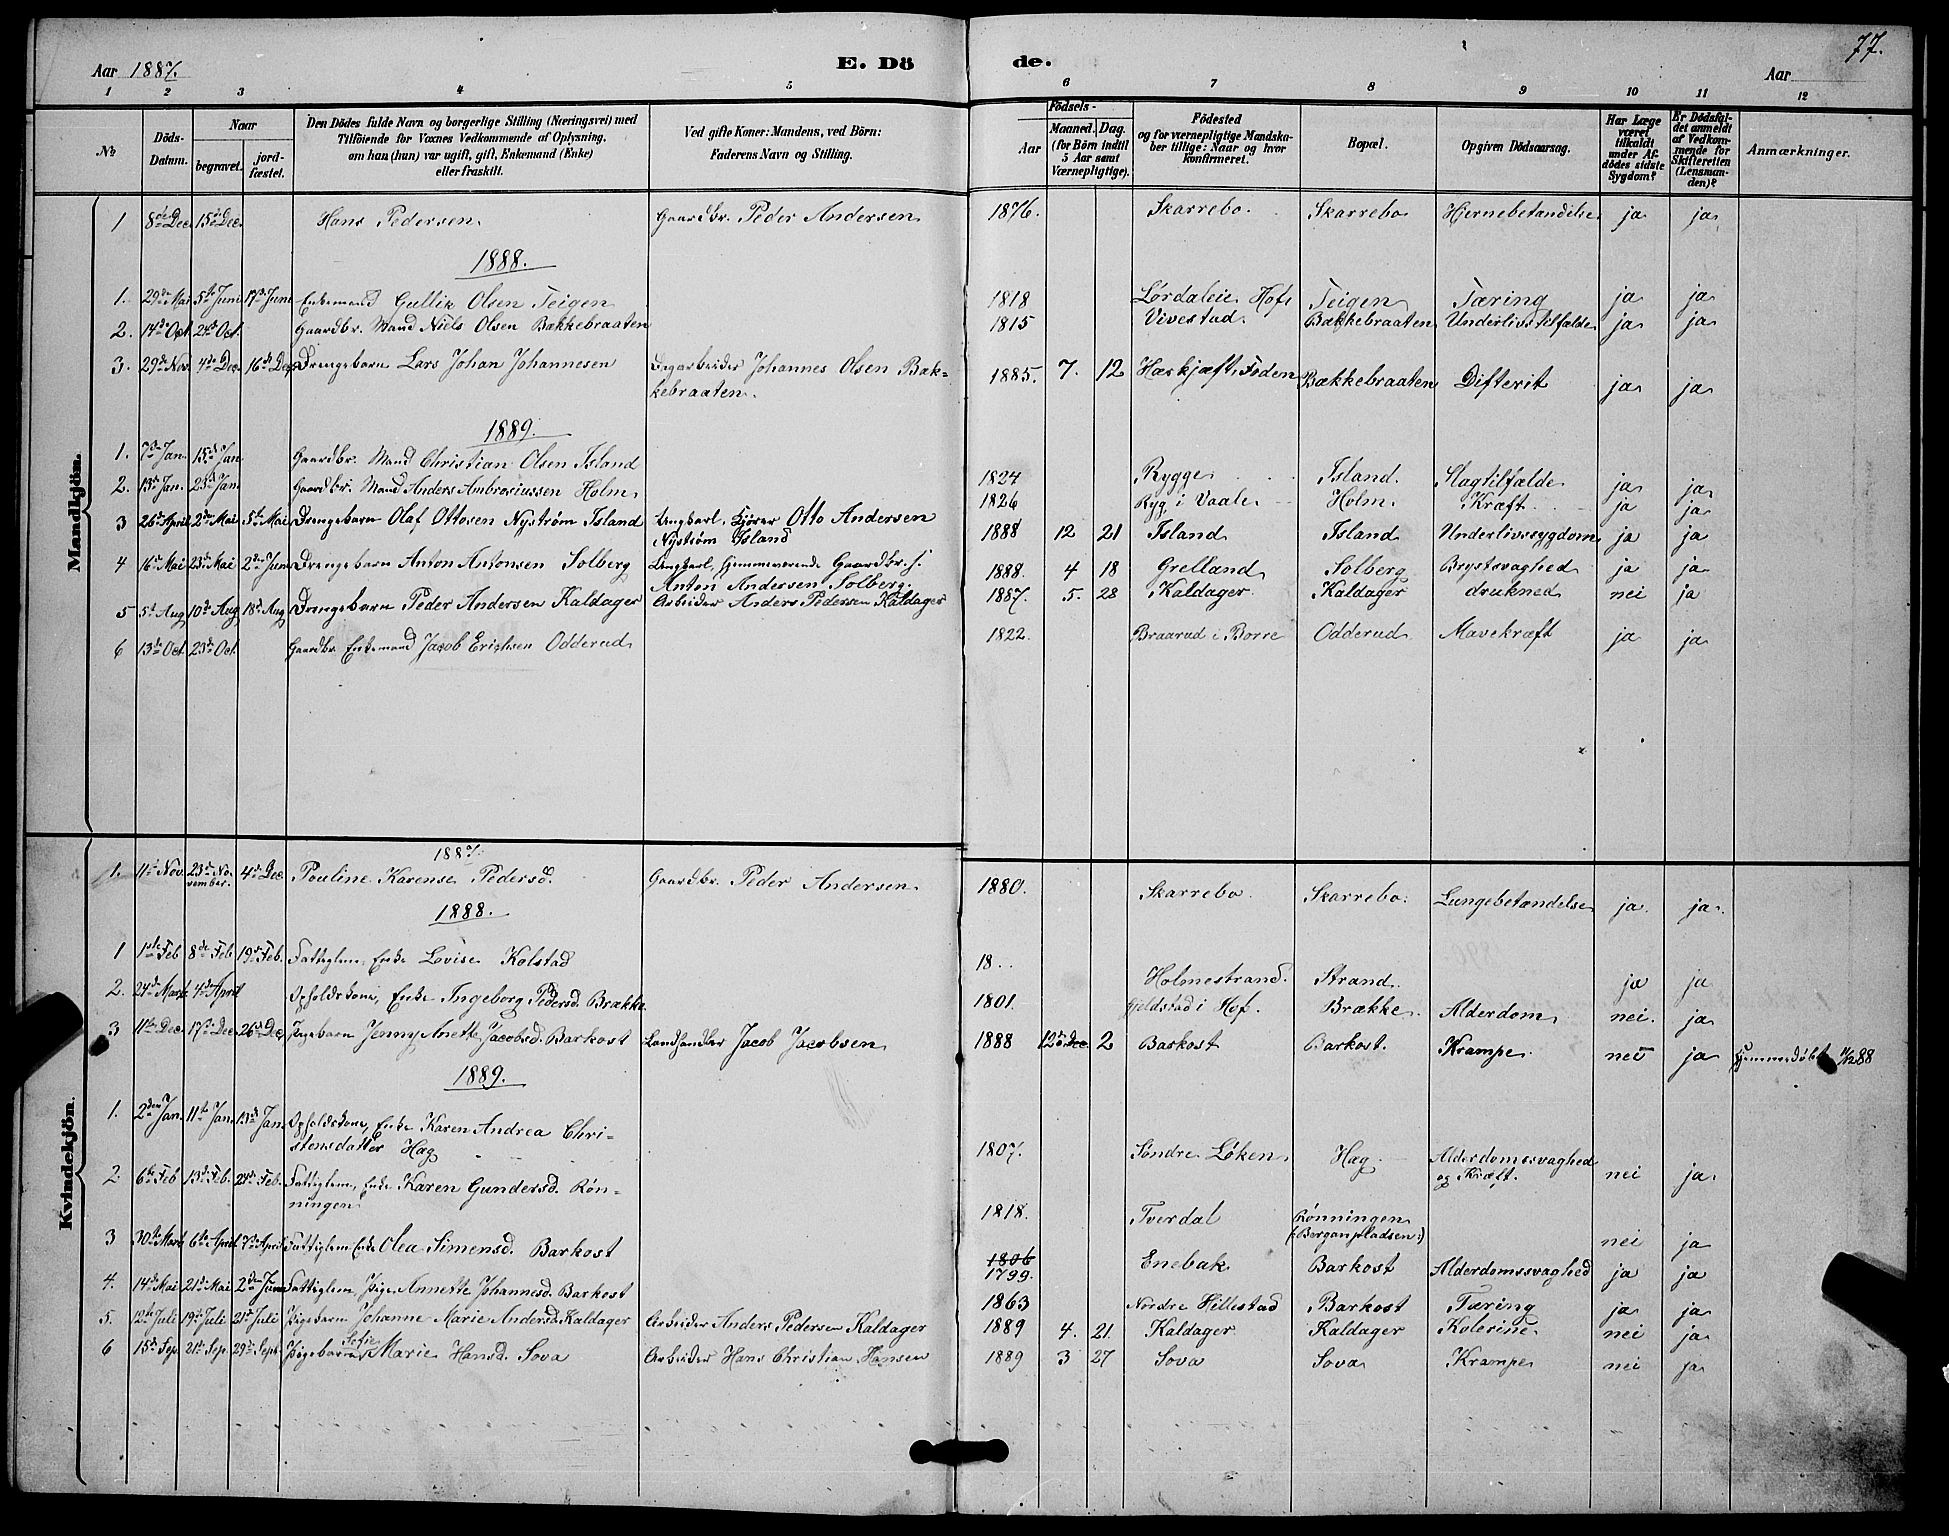 Aar 1887.
E. Dö
de.
77.
Aar
1 2 3 4 5 6 7 8 9 10 11 12
No
Döds-Datum.
Naar
begravet.
jord-fæstet.
Den Dödes fulde Navn og borgerlige Stilling (Næringsvei) med
Tilföiende for Voxnes Vedkommende af Oplysning,
om han (hun) var ugift, gift, Enkemand (Enke)
eller fraskilt.
Ved gifte Koner: Mandens, ved Börn:
Faderens Navn og Stilling.
Födsels-
Aar
Maaned.
Dag.
(for Börn indtil
5 Aar samt
Værnepligtige).
Födested
og for værnepligtige Mandska-
ber tillige: Naar og hvor
konfirmeret.
Bopæl.
Opgiven Dödsaarsag.
Har Læge
været
tilkaldt
under Af-
dödes sidste
Sygdom?
Er Dödsfal-
det anmeldt
af Vedkom-
mende for
Skifteretten
(Lensman-
den)?
Anmærkninger.
Mandkjön.
1 8de Dec. 15de Dec. Hans Pedersen. Gaardbr. Peder Andersen 1876. Skarrebo. Skarrebo Hjernebetændelse ja ja
1888.
1. 29de Mai 5te Juni 17de Juni Enkemand Gullik Olsen Teigen 1818 Lørdaleie Hof Teigen Tæring ja ja
2. 14de Oct. 24de Oct. Gaardbr. Mand Niels Olsen Bækkebraaten 1815 Vivestad. Bækkebraaten Underlivstilfælde ja ja
3. 29de Nov. 4de Dec. 16de Dec. Drengebarn Lars Johan Johannesen Dagarbeider Johannes Olsen Bæk- 1885. 7. 12 Bækkebraaten Difterit ja ja
kebraaten.
1889.
1. 7de Jan. 15de Jan. Gaardbr. Mand Christian Olsen Island 1824 Rygge Island. Slagtilfælde ja ja
2. 13de Jan. 23de Jan. Gaardbr. Mand Anders Ambrosiussen Holm 1826 Ryg i Vaale Holm. Kræft ja ja
3 26de April 2den Mai 5te Mai Drengebarn Olaf Ottosen Nystrøm Island Ungkarl, Kjører Otto Andersen 1888 12 21 Island Island Underlivssygdom ja ja
Nystrøm Island
4 16de Mai 23de Mai 2den Juni Drengebarn Anton Antonsen Solberg Ungkarl, hjemmeværende Gaardbr. s. 1888. 4 18 Grelland Solberg Brystsvaghed ja ja
Anton Andersen Solberg.
5 5te Aug. 10de Aug. 18de Aug. Drengebarn Peder Andersen Kaldager Arbeider Anders Pedersen Kaldager 1887. 5. 28 Kaldager. Kaldager druknede nei ja
6 13de Oct. 23de Oct. Gaardbr. Enkemand Jacob Erichsen Odderud 1822. Braarud i Borre Odderud Mavekræft ja ja
Kvindekjön.
1887.
1. 11te Nov. 23de No- 4de Dec. Pauline Karense Pedersd. Gaardbr. Peder Andersen 1880. Skarrebo. Skarrebo. Lungebetændelse ja. ja.
vember.
1888.
1 1ste Feb. 8de Feb. 19de Feb. Fattiglem, Enke Lovise Kolstad 18.. Holmestrand. Strand. ja ja
2. 24de Marts 4de April Opholdskone, Enke Ingeborg Pedersd. Brække 1801. Gjeldstad i Hof. Brække. Alderdom nei. ja
3 11te Dec. 17de Dec. 26de Dec. Pigebarn Jenny Anette Jacobsd. Barkost Landhandler Jacob Jacobsen 1888 12te Dec. 2 Barkost Barkost. Krampe. nei ja Hjemmedøbt 88
1889.
1. 2den Jan. 11te Jan. 13de Jan. Opholdskone, Enke Karen Andrea Chri-
stensdatter Hag 1807. Søndre Løken Hag Alderdomssvaghed nei ja.
og Kræft.
2 6te Feb. 13de Feb. 24de Feb. Fattiglem, Enke Karen Gundersd. Røn-
ningen 1818. Tverdal Rønningen nei ja
(:Berganpladsen:)
3 30te Marts 6te April 7de April Fattiglem Enke Olea Simensd. Barkost 1806 1799. Enebak Barkost Alderdomssvaghed ja ja
4. 14de Mai 21de Mai 2den Juni Fattiglem, Pige Annette Johannesd. Barkost 1863 Nordre Hillestad Barkost Tæring ja ja
5. 12te Juli 19de Juli 21de Juli Pigebarn Johanne Marie Andersd. Kaldager Arbeider Anders Pedersen Kaldager 1889 4. 21. Kaldager Kaldager Kolerine nei ja
6 15de Sep. 21de Sep. 29de Sept. Pigebarn Sofie Marie Hansd. Sova Arbeider Hans Christian Hansen 1889 3 27 Sova Sova Krampe nei ja